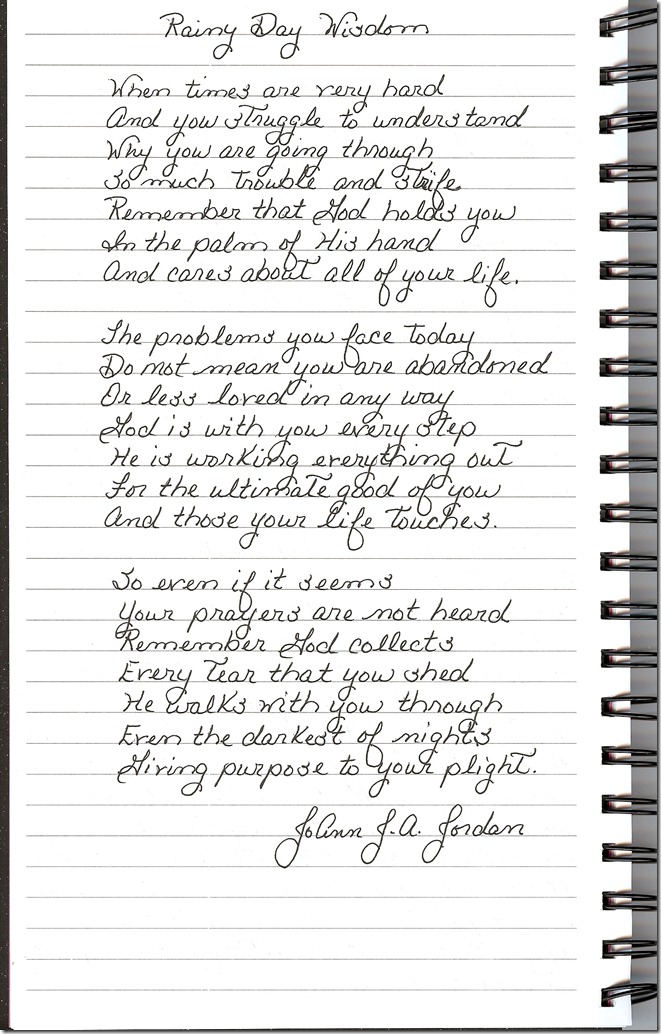 Rainy Day Wisdom
When times are very hard
And you struggle to understand
Why you are going through
So much trouble and strife
Remember that God holds you
In the palm of His hand
And cares about all of your life.
The problems you face today
Do not mean you are abandoned
Or less loved in any way
God is with you every step
He is working everything out
For the ultimate good of you
And those your life touches.
So even if it seems
Your prayers are not heard
Remember God collects
Every tear that you shed
He walks with you through
Even the darkest of nights
Giving purpose to your plight.
JoAnn J.A. Jordan